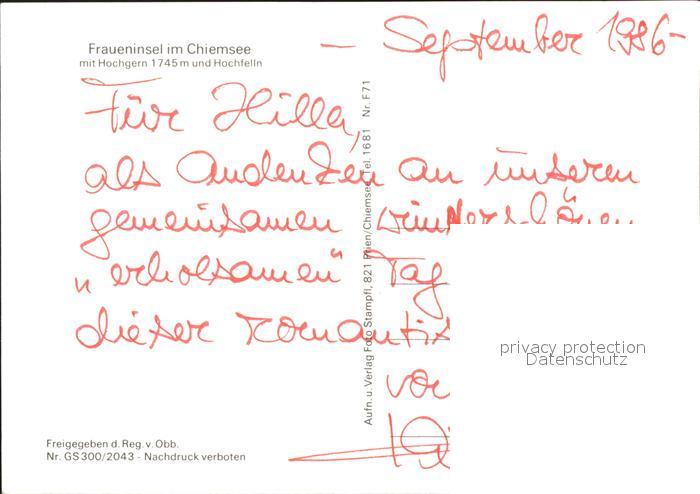 Fraueninsel im Chiemsee
mit Hochgern 1745 m und Hochfelln
– September 1986 –
Für Hilla,
als Andenken an unseren
gemeinsamen
„erholsamen" Tag
dieser romantis
vo
Aufn. u. Verlag Foto Stampfl, 821 Prien/Chiemsee, Tel. 1681 Nr. F71
privacy protection
Datenschutz
Freigegeben d. Reg. v. Obb.
Nr. GS 300/2043 - Nachdruck verboten